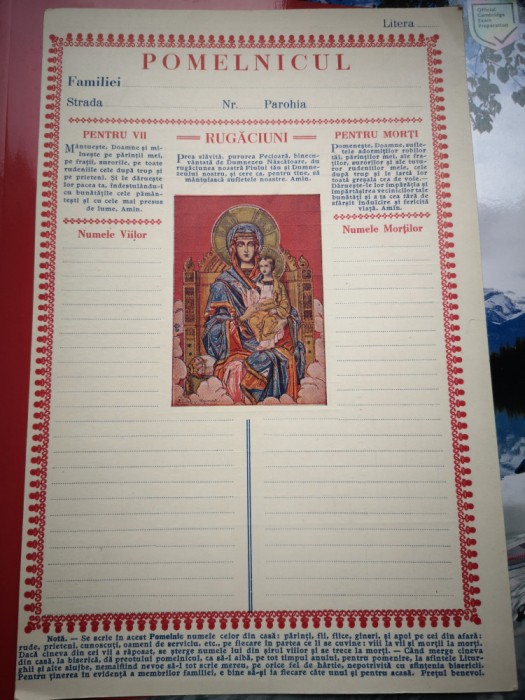 Official
Cambridge
Exam
Preparation
Litera
POMELNICUL
Familiei
Strada Nr. Parohia
PENTRU VII
Mântuește, Doamne și mi-
luește pe părinții mei,
pe frații, surorile, pe toate
rudeniile cele după trup și
pe prieteni. Și le dăruește
lor pacea ta, îndestulându-i
cu bunătățile cele pămân-
tești și cu cele mai presus
de lume, Amin.
RUGĂCIUNI
Prea slăvită, pururea Fecioară, binecu-
vântată de Dumnezeu Născătoare, du
rugăciunea noastră Fiului tău și Dumne-
zeului nostru, și cere ca, pentru tine, să
mântuiască sufletele noastre. Amin.
PENTRU MORȚI
Pomenește, Doamne, sufle-
tele adormiților robilor
tăi, părinților mei, ale fra-
ților, surorilor și ale tutu-
ror rudeniilor mele, cele
după trup și le iartă lor
toată greșala cea de voie.—
Dăruește-le lor împărăția și
împărtășirea vecinicilor tale
bunătăți și a ta cea fără de
sfârșit îndulcire și fericită
viață. Amin.
Numele Viilor
Numele Morților
Notă. — Se scrie în acest Pomelnic numele celor din casă: părinți, fii, fiice, gineri, și apoi pe cei din afară:
rude, prieteni, cunoscuți, oameni de serviciu, etc., pe fiecare în partea ce li se cuvine: viii la vii și morții la morți.
Dacă cineva din cei vii a răposat, se șterge numele lui din șirul viilor și se trece la morți. — Când merge cineva
din casă, la biserică, dă preotului pomelnicul, ca să-l aibă, pe tot timpul anului, pentru pomenire, la sfintele Litur-
ghii și alte slujbe, nemaifiind nevoe să-l tot scrie mereu, pe orice fel de hârtie, nepotrivită cu sfințenia bisericii.
Pentru ținerea în evidență a membrilor familiei, e bine să-și ia fiecare câte unul și pentru acasă. Prețul benevol.